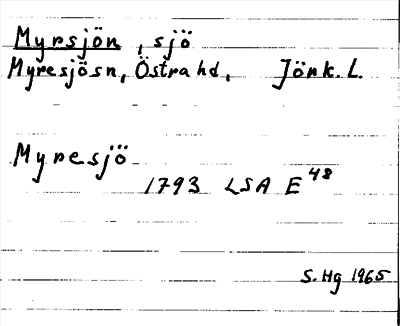 Myrsjön, sjö
Myresjösn, Östra hd, Jönk. L.
Myresjö
1793 LSA E48
S. Hg 1965